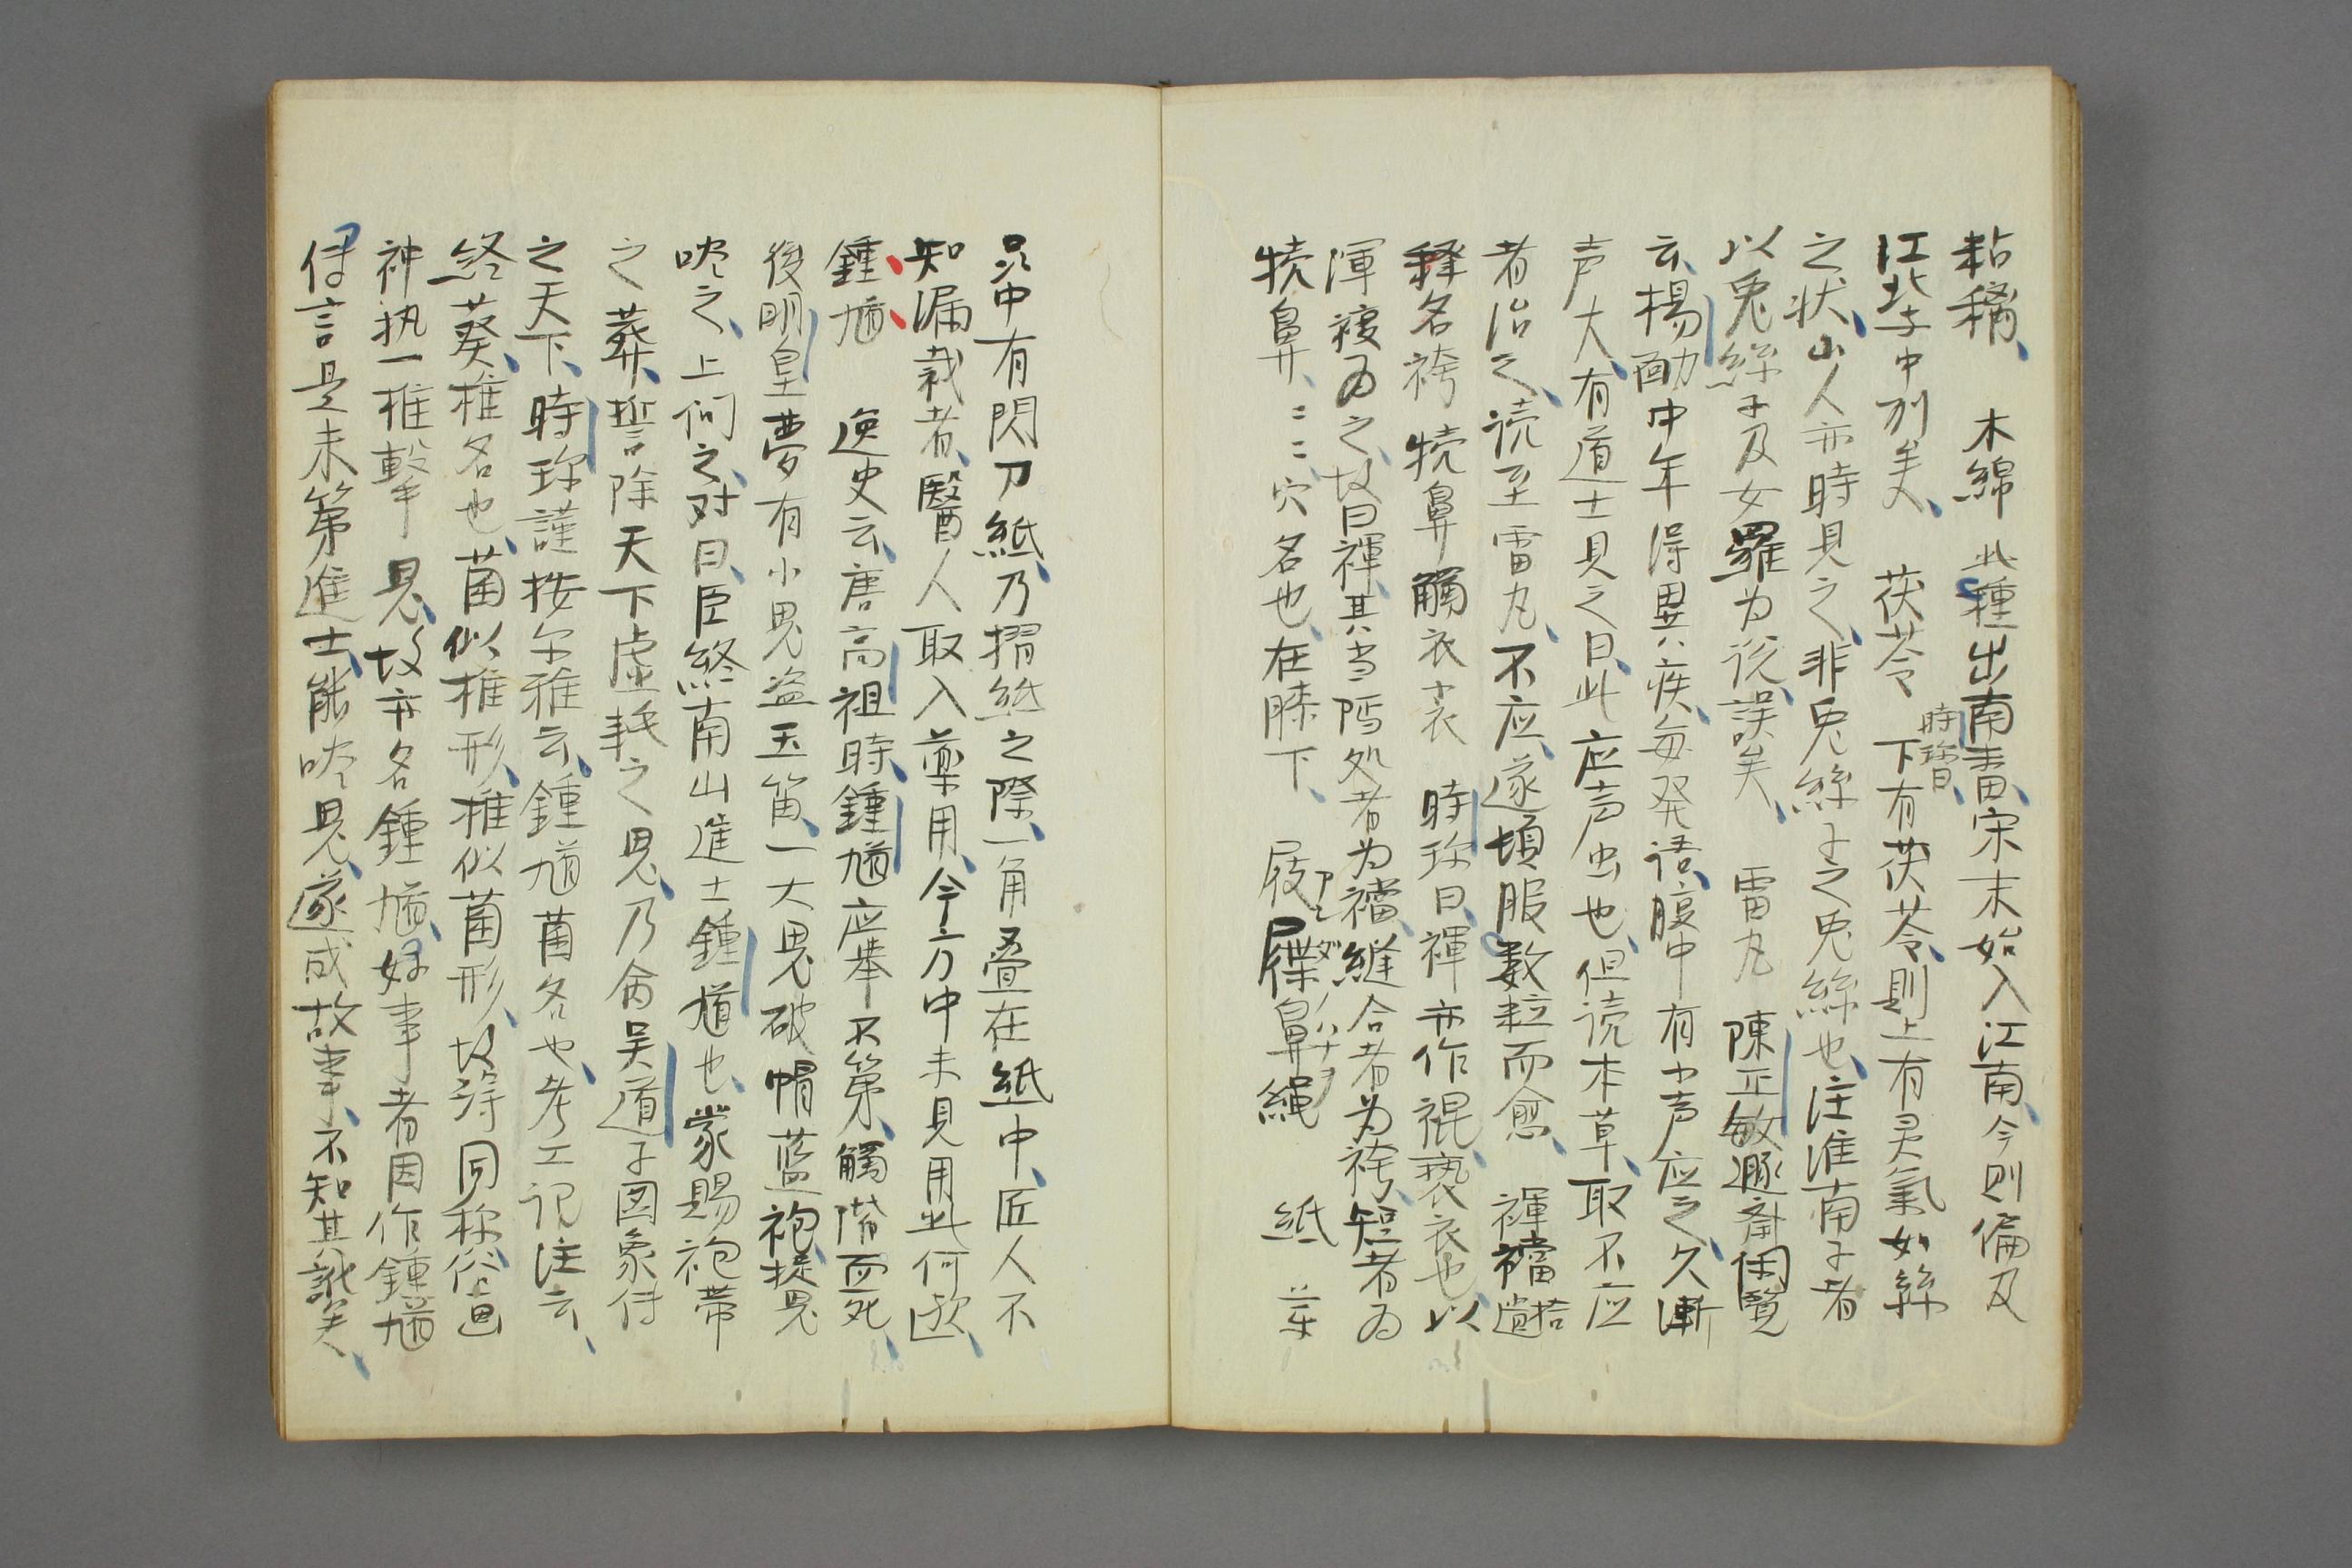 粘稠、　木綿　此種出南番、宋末始入江南、今則徧及
江北与中州矣、　茯苓　時珍曰、下有茯苓、則上有灵氣如絲
之状、山人亦時見之、非兎絲子之兎絲也、注淮南子者
以兎絲子及女羅为説、誤矣、　雷丸　陳正敏遯斎閑覧
云、楊勔中年得異疾、毎発語、腹中有小声应之、久漸
声大、有道士見之曰、此应声虫也、但読本草、取不应
者治之、読至雷丸、不应、遂頓服数粒而愈、　褌襠　
释名袴　犊鼻　觸衣　小衣　時珍曰、褌亦作裩、褻衣也、以
渾複为之、故曰褌、其当隠処者为襠、縫合者为袴、短者为
犊鼻、ニニ、穴名也、在膝下、　屐屧鼻繩　紙　
呂中有閃刀紙、乃摺紙之際、一角叠在紙中、匠人不
知漏裁者、醫人取入薬用、今方中未見用此、何欤、
鍾馗　逸史云、唐高祖時、鍾馗应挙不第、觸階而死、
後明皇夢有小鬼盗玉笛、一大鬼破帽藍袍、捉鬼
啖之、上问之、对曰、臣終南山進士鍾馗也、蒙賜袍帯
之葬、誓除天下虚耗之鬼、乃命吴道子図象传
之天下、時珍謹按尔雅云、鍾馗菌名也、考工记注云、
終葵、椎名也、菌似椎形、椎似菌形、故得同称、俗画
神执一椎撃鬼、故亦名鍾馗、好事者因作鍾馗
传、言是未第進士、能啖鬼、遂成故事、不知其訛矣、